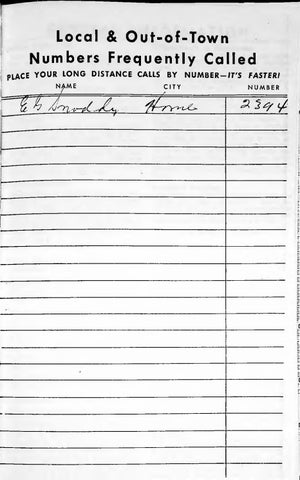 Local & Out-of-Town
Numbers Frequently Called
PLACE YOUR LONG DISTANCE CALLS BY NUMBER—IT'S FASTER!
NAME CITY NUMBER
E G Snoddy Home 2394